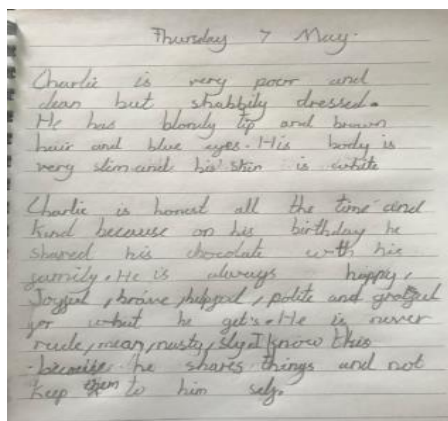 Thursday 7 May.
Charlie is very poor and
clean but shabbily dressed.
He has blondy tip and brown
hair and blue eyes. His body is
very slim and his skin is white
Charlie is honest all the time and
kind because on his birthday he
shared his chocolate with his
family. He is always happy,
Joyful, brave, helpful, polite and grateful
for what he gets. He is never
rude, mean, nasty, sly. I know this
because he shares things and not
keep them to him self.